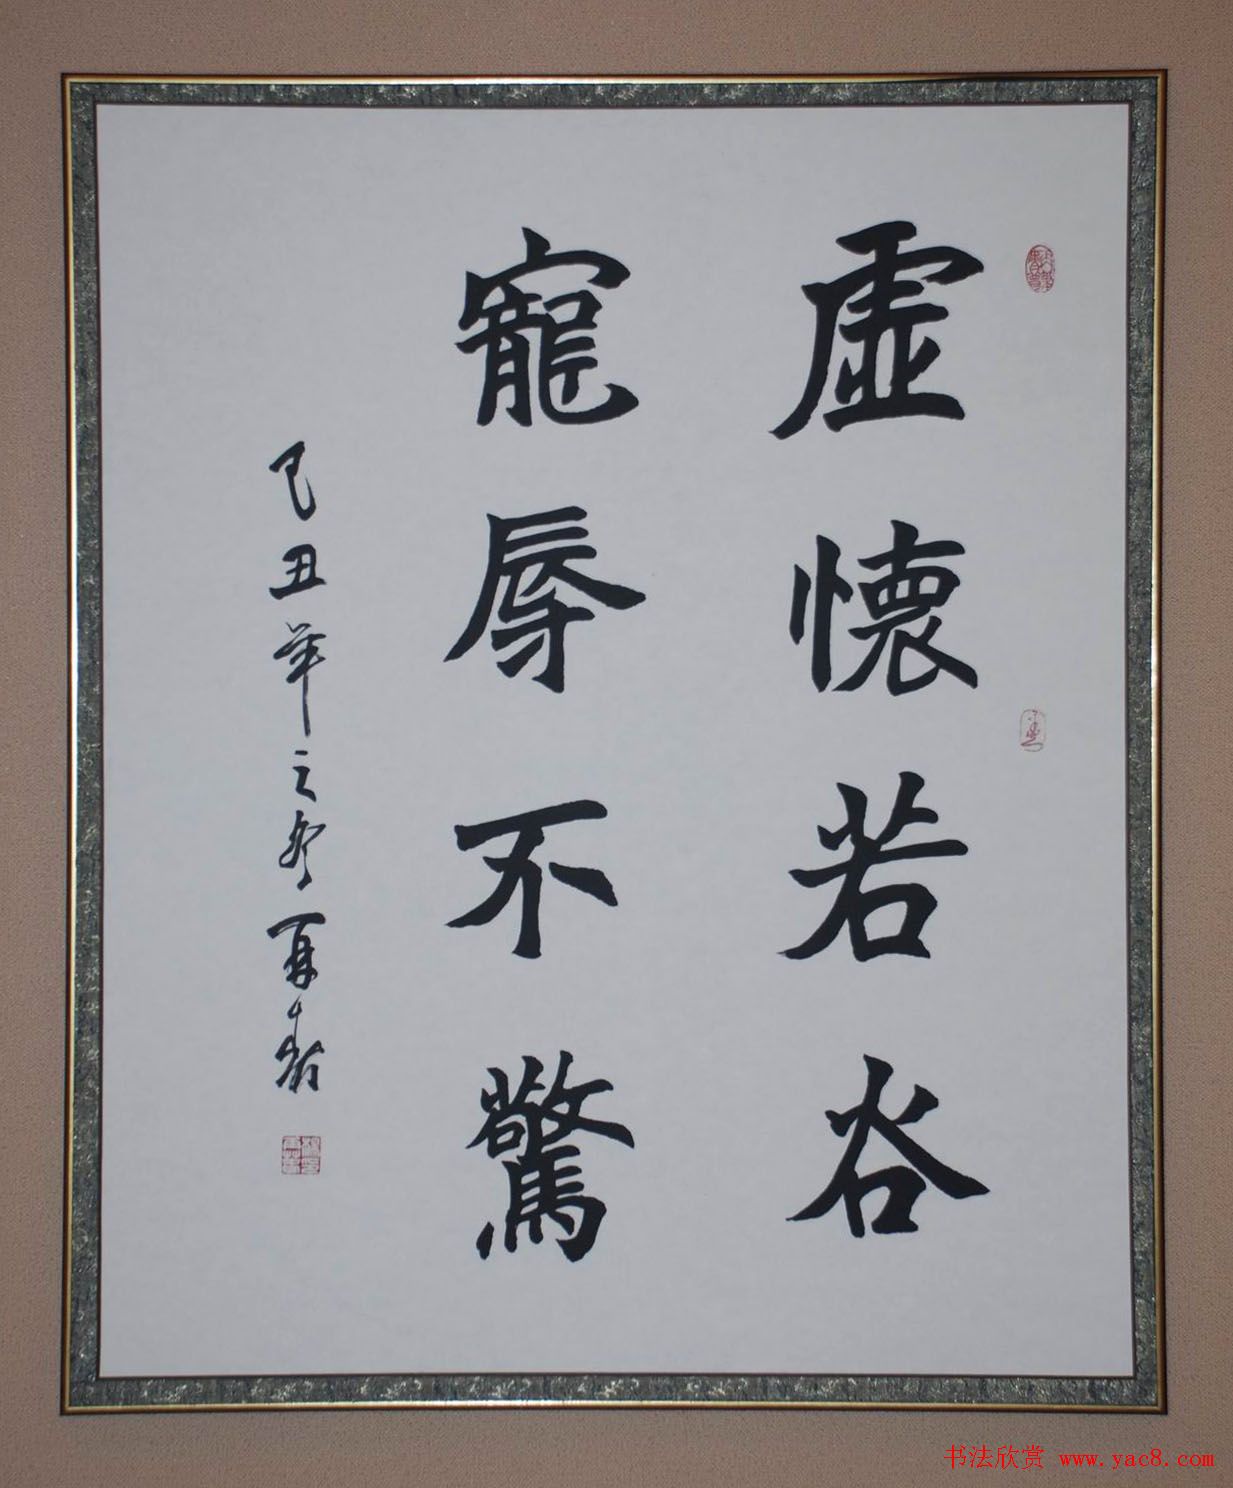 虛懷若谷
寵辱不驚
己丑年之冬
书法欣赏 www.yac8.com